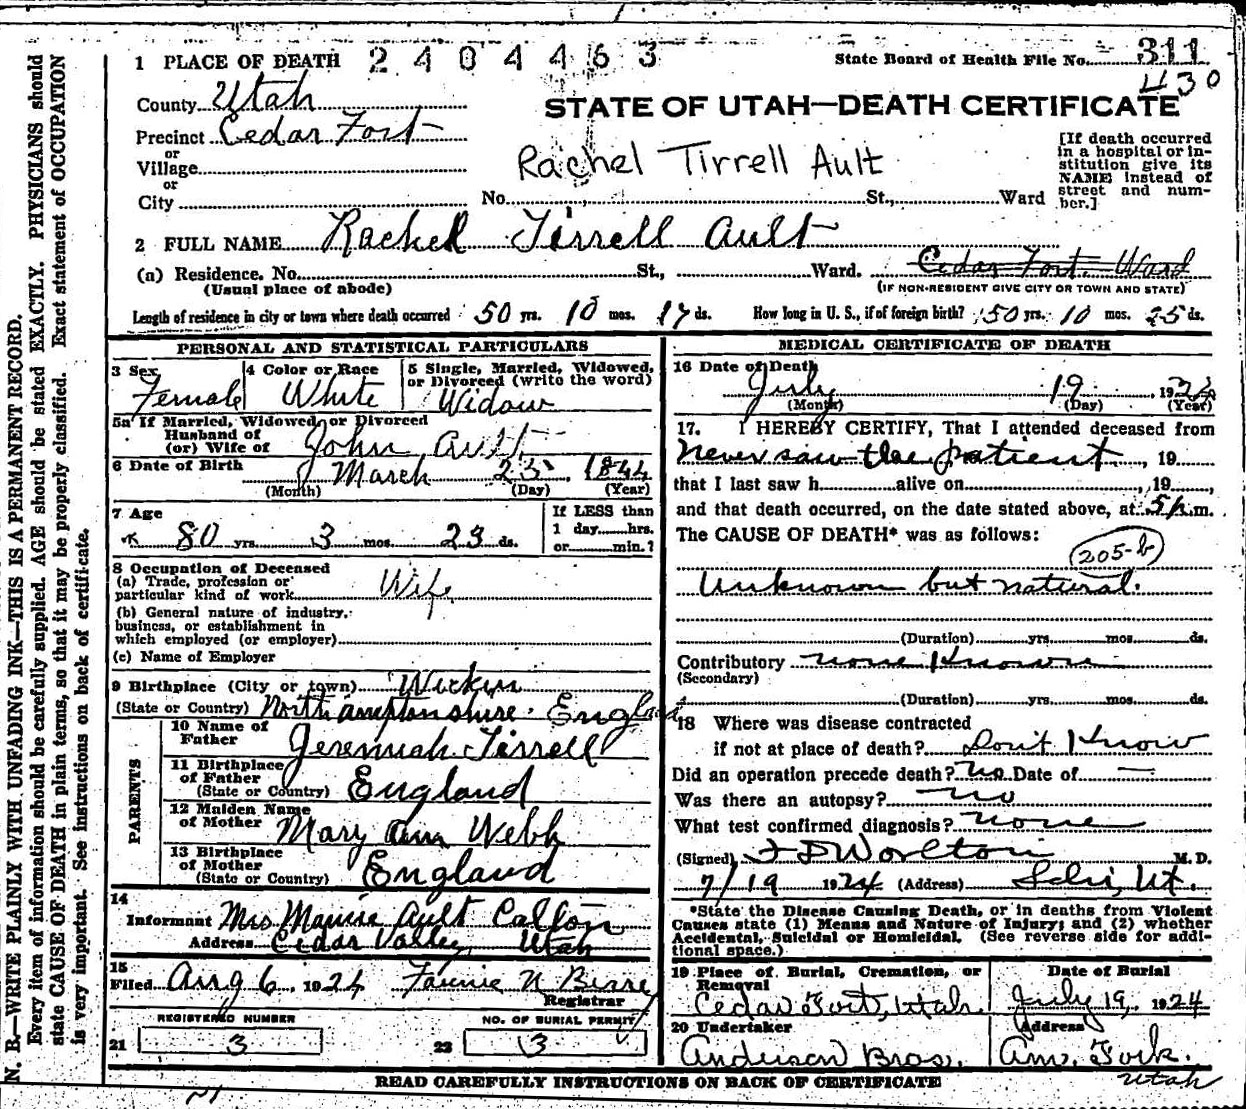 1 PLACE OF DEATH 2404463 State Board of Health File No. 311
430
County Utah
STATE OF UTAH—DEATH CERTIFICATE
Precinct Cedar Fort
or
Village
or
City
Rachel Tirrell Ault
No. St., Ward
[If death occurred
in a hospital or in-
stitution give its
NAME instead of
street and num-
ber.]
2 FULL NAME Rachel Tirrell Ault
(a) Residence. No. St., Ward. Cedar Fort. Ward
(Usual place of abode) (IF NON-RESIDENT GIVE CITY OR TOWN AND STATE)
Length of residence in city or town where death occurred 50 yrs. 10 mos. 17 ds. How long in U. S., if of foreign birth? 50 yrs. 10 mos. 25 ds.
PERSONAL AND STATISTICAL PARTICULARS
3 Sex Female
4 Color or Race White
5 Single, Married, Widowed,
or Divorced (write the word)
Widow
5a If Married, Widowed, or Divorced
Husband of
(or) Wife of John Ault
6 Date of Birth March 23 1844
(Month) (Day) (Year)
7 Age 80 yrs. 3 mos. 23 ds.
If LESS than
1 day hrs.
or min.?
8 Occupation of Deceased
(a) Trade, profession or
particular kind of work Wife
(b) General nature of industry,
business, or establishment in
which employed (or employer)
(c) Name of Employer
9 Birthplace (City or town)
(State or Country) Northamptonshire. England
PARENTS
10 Name of
Father Jeremiah Tirrell
11 Birthplace
of Father
(State or Country) England
12 Maiden Name
of Mother Mary Ann Webb
13 Birthplace
of Mother
(State or Country) England
14
Informant Mrs Ault
Address Cedar Valley, Utah
15
Filed Aug 6, 1924 Fannie N
Registrar
REGISTERED NUMBER
21 3
NO. OF BURIAL PERMIT
22 3
MEDICAL CERTIFICATE OF DEATH
16 Date of Death
July 19, 1924
(Month) (Day) (Year)
17. I HEREBY CERTIFY, That I attended deceased from
Never saw the patient, 19
that I last saw h alive on, 19,
and that death occurred, on the date stated above, at 5 p.m.
The CAUSE OF DEATH* was as follows:
205-b
Unknown but natural.
(Duration) yrs. mos. ds.
Contributory none Known
(Secondary)
(Duration) yrs. mos. ds.
18 Where was disease contracted
if not at place of death? Don't Know
Did an operation precede death? no Date of —
Was there an autopsy? no
What test confirmed diagnosis? none
(Signed) F D Worlton M. D.
7/19 1924 (Address) Lehi, Ut.
*State the Disease Causing Death, or in deaths from Violent
Causes state (1) Means and Nature of Injury; and (2) whether
Accidental, Suicidal or Homicidal. (See reverse side for addi-
tional space.)
19 Place of Burial, Cremation, or
Removal
Cedar Fort, Utah.
Date of Burial
July 19, 1924
20 Undertaker
Anderson Bros.
Address
Am. Fork.
Utah
READ CAREFULLY INSTRUCTIONS ON BACK OF CERTIFICATE
N. B.—WRITE PLAINLY WITH UNFADING INK—THIS IS A PERMANENT RECORD.
Every item of information should be carefully supplied. AGE should be stated EXACTLY. PHYSICIANS should
state CAUSE OF DEATH in plain terms, so that it may be properly classified. Exact statement of OCCUPATION
is very important. See instructions on back of certificate.